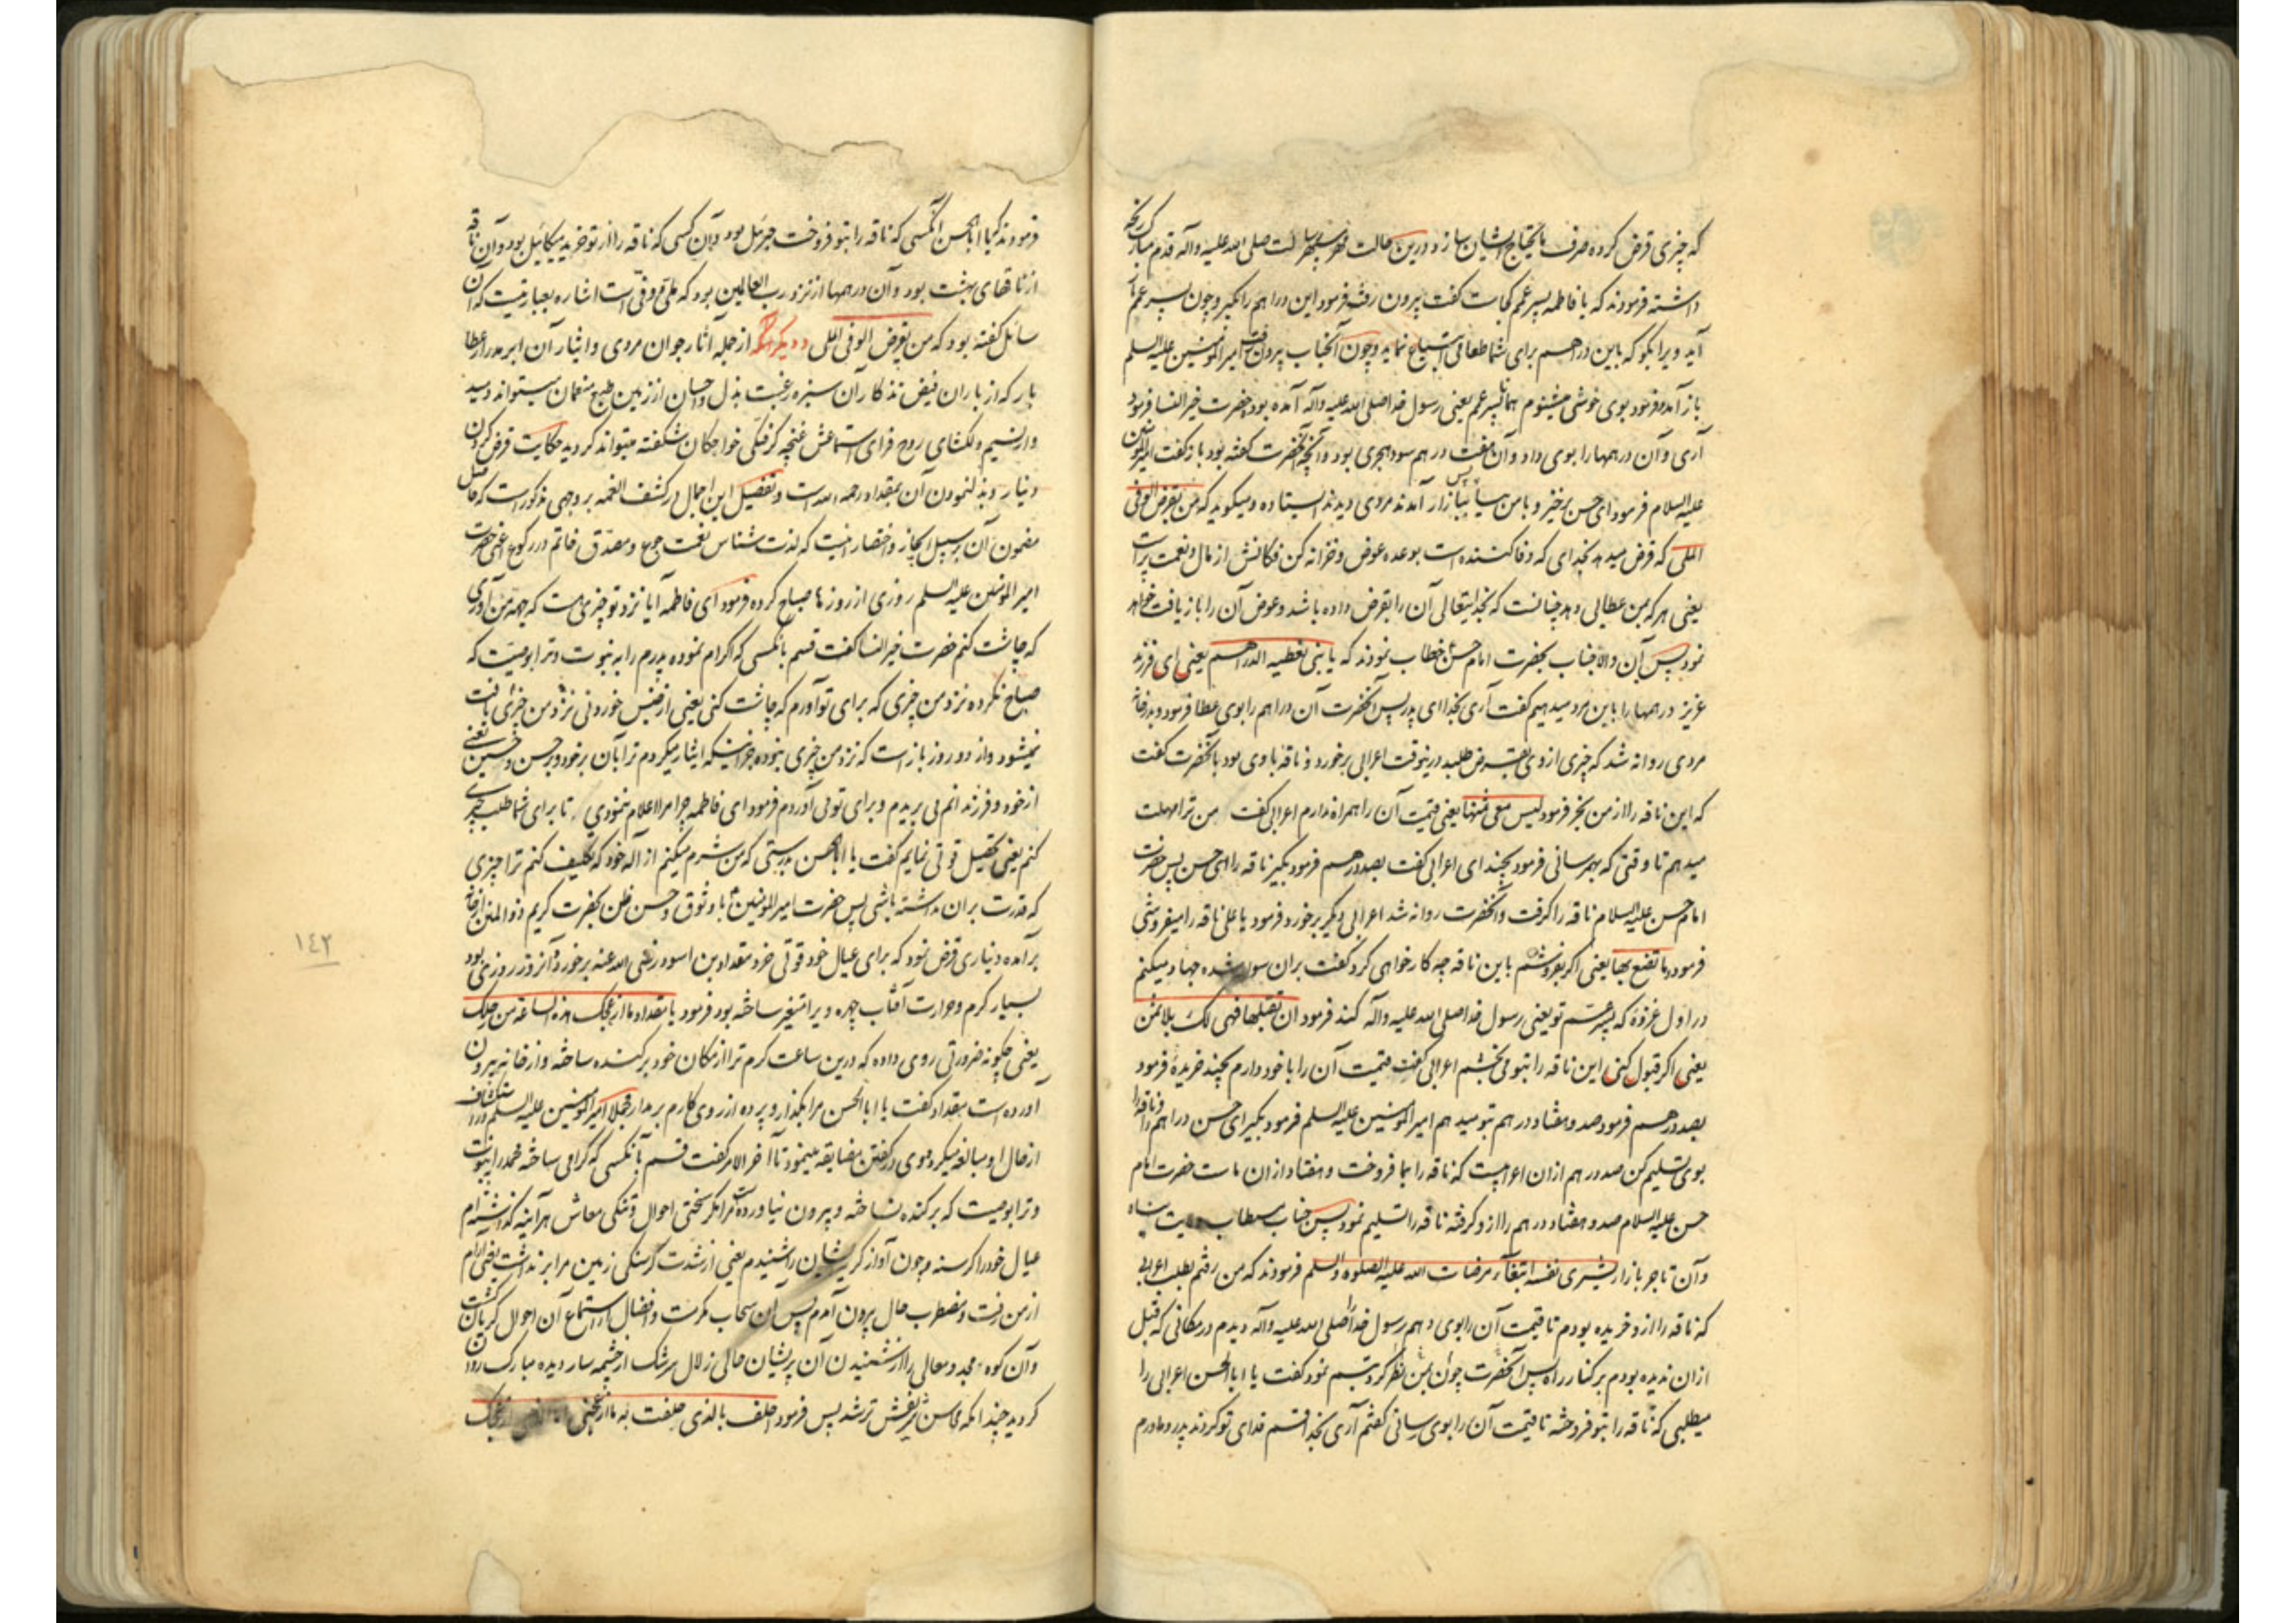 که چیزی قرض کرده صرف مایحتاج ایشان سازد درین حالت حضرت رسالت صلی الله علیه وآله قدم مبارک رنجه
داشته فرمودند که یا فاطمه پسر عمم کجاست گفت بیرون رفته فرمود این دراهم را بگیر و چون پسر عمم
آید ویرا بگو که باین دراهم برای شما طعامی ابتیاع نماید و چون آنجناب بیرون رفت امیرالمؤمنین علیه السلم
باز آمد و فرمود بوی خوشی میشنوم همانا پسر عمم یعنی رسول خدا صلی الله علیه وآله آمده بود حضرت خیرالنسا فرمود
آری و آن درهمها را بوی داد و آن هفت درهم سود هجری بود و آنچه آنحضرت گفته بود باز گفت امیرالمؤمنین
علیه السلام فرمود ای حسن برخیز و با من بیا پس ببازار آمدند مردی دیدند ایستاده و میگوید که من یقرض الوفی
الملی که قرض میدهد بخدای که وفا کننده است بوعده عوض و خزانه کن فکانش از مال و نعمت پر است
یعنی هر که بمن عطایی دهد چنانست که بخدایتعالی آن را بقرض داده باشد و عوض آن را باز یافت خواهد
نمود پس آن والاجناب بحضرت امام حسن خطاب نمودند که یا بنی نعطیه الدراهم یعنی ای فرزند
عزیز درهمها را باین مرد میدهیم گفت آری بخدا ای پدر پس آنحضرت آن دراهم را بوی عطا فرمود و بدر خانه
مردی روانه شد که چیزی از وی بقرض طلبد درینوقت اعرابی برخورد و ناقه با وی بود بآنحضرت گفت
که این ناقه را از من بخر فرمود لیس معی ثمنها یعنی قیمت آن را همراه ندارم اعرابی گفت من ترا مهلت
میدهم تا وقتی که بهم رسانی فرمود بچند ای اعرابی گفت بصد درهم فرمود بگیر ناقه را ای حسن پس حضرت
امام حسن علیه السلام ناقه را گرفت و آنحضرت روانه شد اعرابی دیگر برخورد و فرمود یا علی ناقه را میفروشی
فرمود و ما تصنع بها یعنی اگر بفروشم باین ناقه چه کار خواهی کرد گفت بران سوار شده جهاد میکنم
در اول غزوه که پسر عم تو یعنی رسول خدا صلی الله علیه وآله کند فرمود ان تقبلها فهی لک بلا ثمن
یعنی اگر قبول کنی این ناقه را بتو می بخشم اعرابی گفت قیمت آن را با خود دارم بچند خریدهٔ فرمود
بصد درهم فرمود صد و هفتاد درهم بتو میدهم امیرالمؤمنین علیه السلم فرمود بگیر ای حسن دراهم را و ناقه را
بوی تسلیم کن صد درهم ازان اعرابیست که ناقه را بما فروخت و هفتاد ازان ماست حضرت امام
حسن علیه السلام صد و هفتاد درهم را ازو گرفته ناقه را تسلیم نمود پس جناب
وآن تاجر بازار یشری نفسه ابتغاء مرضات الله علیه الصلوة والسلم فرمودند که من رفتم بطلب اعرابی
که ناقه را ازو خریده بودم تا قیمت آن را بوی دهم رسول خدا را صلی الله علیه وآله دیدم در مکانی که قبل
ازان ندیده بودم بر کنار راه پس آنحضرت چون بمن نظر کرد تبسم نمود گفت یا ابا الحسن اعرابی را
میطلبی که ناقه را بتو فروخته تا قیمت آن را بوی رسانی گفتم آری بخدا قسم فدای تو گردند پدر و مادرم
فرمودند که یا ابا الحسن آنکسی که ناقه را بتو فروخت جبرئیل بود و آن کسی که ناقه را از تو خرید میکائیل بود و آن ناقه
از ناقهای بهشت بود و آن درهمها از نزد رب العالمین بود که ملی و وفی است اشاره بعبارتیست که آن
سائل گفته بود که من یقرض الوفی الملی و دیگر آنکه از جمله آثار جوان مردی و ایثار آن ابر مدرار عطا
بار که از باران فیض تذکار آن سبزه رغبت بذل و احسان از زمین طبع منعمان میتواند دمید
و از نسیم دلگشای روح فزای استماعش غنچه گرفتگی خواجگان شگفته میتواند گردید حکایت قرض کردن
دینار و بذل نمودن آن بمقداد رحمه الله است و تفصیل این اجمال در کشف الغمه بر وجهی مذکورست که حاصل
مضمون آن بر سبیل ایجاز و اختصار اینست که لذت شناس نعمت جوع و مصدق خاتم در رکوع اعنی حضرت
امیرالمؤمنین علیه السلم روزی از روزها صباح کرده فرمود ای فاطمه آیا نزد تو چیزی هست که بجهة من آوری
که چاشت کنم حضرت خیرالنسا گفت قسم بآنکسی که اکرام نموده پدرم را به نبوت و ترا بوصیت که
صباح نکرده نزد من چیزی که برای تو آورم که چاشت کنی یعنی از جنس خوردنی نزد من چیزی یافت
نمیشود و از دو روز باز است که نزد من چیزی نبوده جز اینکه ایثار میکردم ترا بآن بر خود و بر حسن و حسین یعنی
از خود و فرزندانم می بریدم و برای تو می آوردم فرمود ای فاطمه چرا مرا اعلام ننمودی تا برای شما طلب چیزی
کنم یعنی تحصیل قوتی نمایم گفت یا ابا الحسن بدرستی که من شرم میکنم از آله خود که تکلیف کنم ترا چیزی
که قدرت بران نداشته باشی پس حضرت امیرالمؤمنین با وثوق و حسن ظن بحضرت کریم ذو المنن از خانه
برآمده دیناری قرض نمود که برای عیال خود قوتی خرد مقداد بن اسود رضی الله عنه برخورد و آنروز روزی بود
بسیار گرم و حرارت آفتاب چهره ویرا متغیر ساخته بود فرمود یا مقداد ما ازعجک هذه الساعة من رحلک
یعنی چگونه ضرورتی روی داده که درین ساعت گرم ترا از مکان خود برکنده ساخته و از خانه بیرون
آورده است مقداد گفت یا ابا الحسن مرا بگذار و پرده از روی کارم بر مدار مجملا امیرالمؤمنین علیه السلم در استکشاف
از حال او مبالغه میکرد و وی در گفتن مضایقه مینمود تا آخر الامر گفت قسم بآنکسی که گرامی ساخته محمد را بنبوت
و ترا بوصیت که برکنده نساخته و بیرون نیاورده است مرا مگر سختی احوال و تنگی معاش هر آینه گذاشته ام
عیال خود را گرسنه و چون آواز گریه ایشان را شنیدم یعنی از شدت گرسنگی زمین مرا بر نداشت یعنی آرام
از من رفت و مضطرب حال بیرون آمدم پس آن سحاب مکرمت و افضال از استماع آن احوال گریان گشت
و آن کوه مجد و معالی را از شنیدن آن پریشان حالی زلال سرشک از چشمه سار دیده مبارک روان
گردید چندانکه محاسن شریفش تر شد پس فرمود احلف بالذی حلفت به ما ازعجنی ازعجک